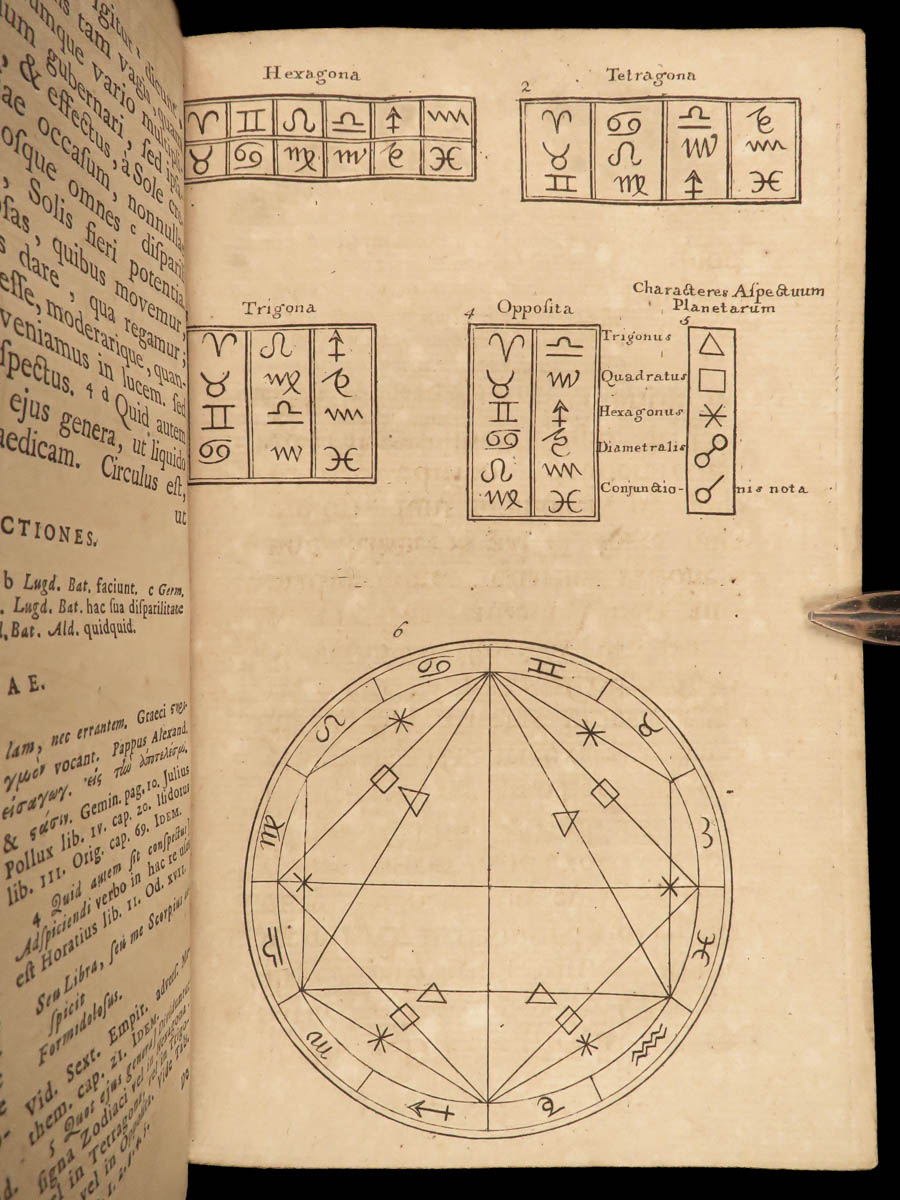 igitur, dicunt,
tam vaga, quam
umque vario multiplici
gubernari, sed ipsa
, & effectus, à Sole
ae occasum, nonnullas
osque omnes c disparili
, Solis fieri potentia
sas, quibus movemur,
s dare, qua regamur;
esse, moderarique, quan-
veniamus in lucem. sed
spectus. 4 d Quid autem
ejus genera, ut liquido
aedicam. Circulus est,
ut
CTIONES.
b Lugd. Bat. faciunt. c Germ.
. Lugd. Bat. hac sua disparilitate
, Bat. Ald. quidquid.
A E.
lam, nec errantem. Graeci
vocant. Pappus Alexand.
& φάσιν. Gemin. pag. 10. Julius
Pollux lib. IV. cap. 20. Isidorus
lib. III. Orig. cap. 69. IDEM.
4 Quid autem sit conspectus]
Adspiciendi verbo in hac re usus
est Horatius lib. 11. Od. XVII.
Seu Libra, seu me Scorpius
spicit
Formidolosus.
Vid. Sext. Empir. advers.
them. cap. 21. IDEM.
5 Quot ejus genera]
signa Zodiaci vel in Hexagona,
vel in Tetragona, vel in
vel in Opposita. Vide
Hexagona
♈ ♊ ♌ ♎ ♐ ♒
♉ ♋ ♍ ♏ ♑ ♓
2 Tetragona
♈ ♋ ♎ ♑
♉ ♌ ♏ ♒
♊ ♍ ♐ ♓
Trigona
♈ ♌ ♐
♉ ♍ ♑
♊ ♎ ♒
♋ ♏ ♓
4 Opposita
♈ ♎
♉ ♏
♊ ♐
♋ ♑
♌ ♒
♍ ♓
Characteres Aspectuum
Planetarum
5
Trigonus △
Quadratus □
Hexagonus ⚹
Diametralis ☍
Conjunctio- ☌ nis nota
6
♋ ♊
♌ ♉
♍ ♈
♎ ♓
♏ ♒
♐ ♑